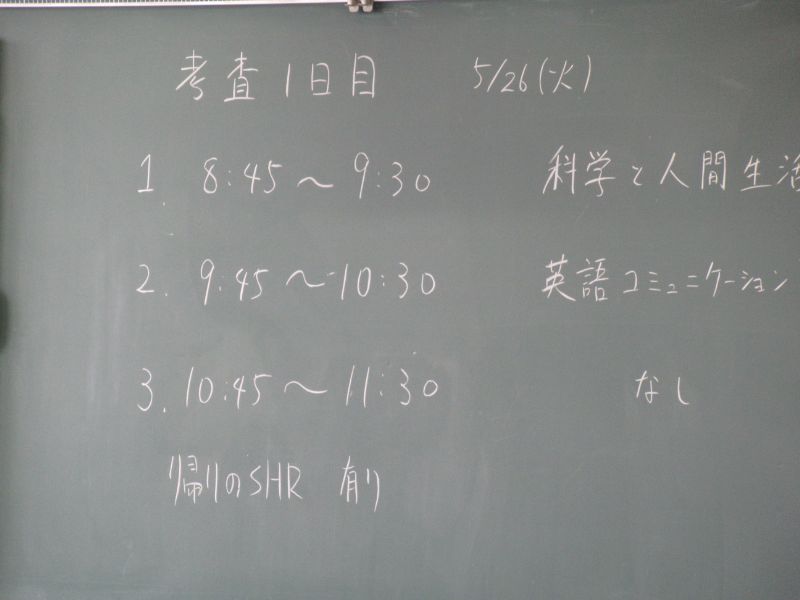 考査1日目 5/26(火)
1. 8:45〜9:30 科学と人間生活
2. 9:45〜10:30 英語コミュニケーション
3. 10:45〜11:30 なし
帰りのSHR 有り